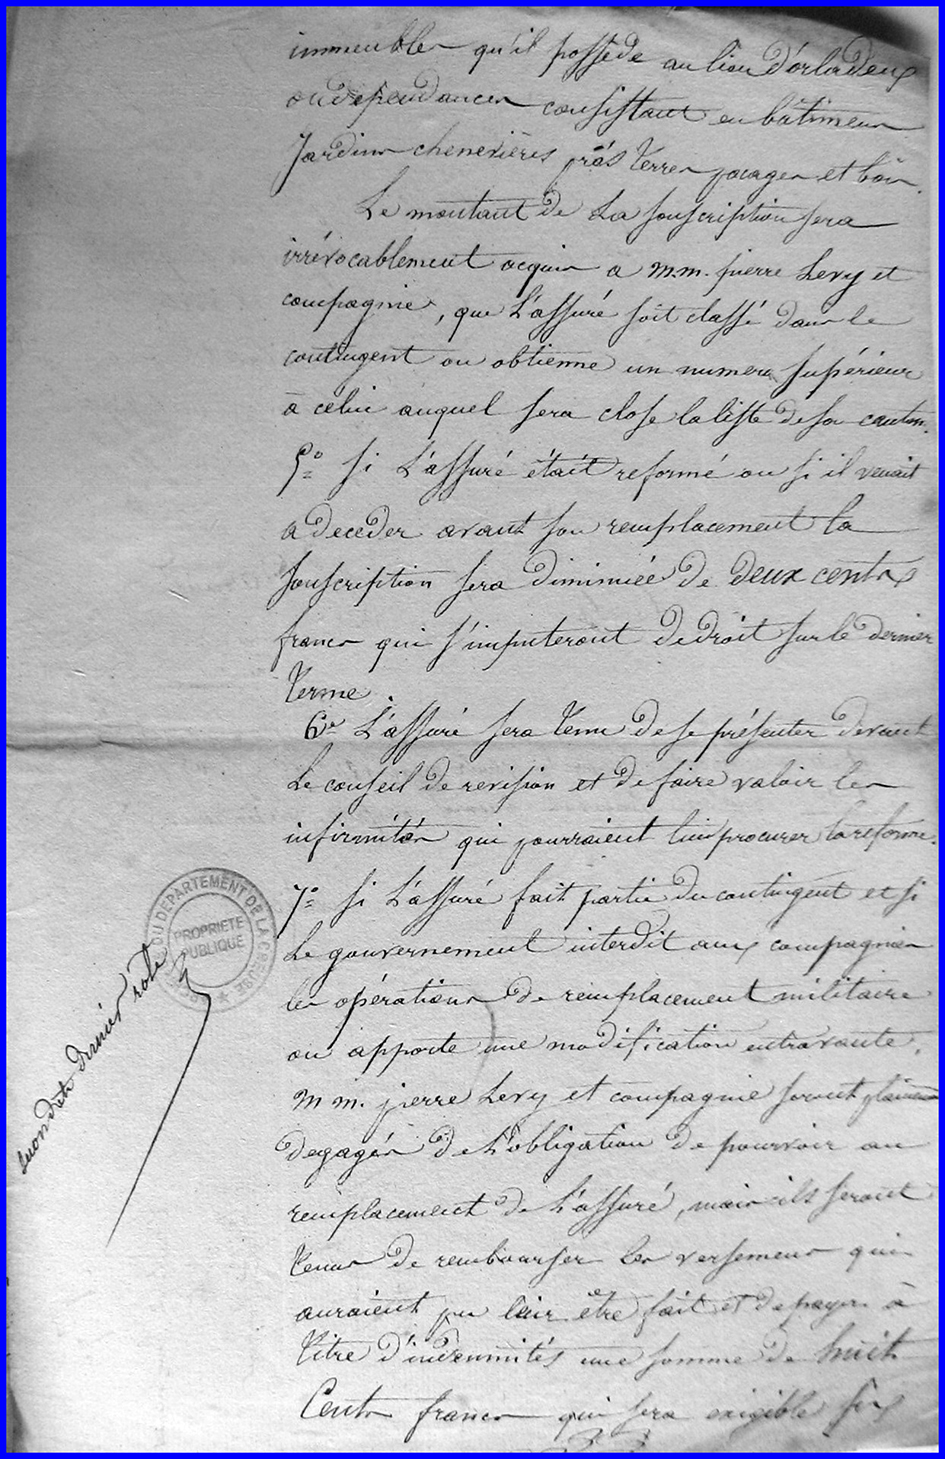 immeubles qu'il possède au lieu d'orlordeux
ou dependances consistant en bâtimens
Jardins chenevières prés terres pacages et bois.
Le montant de La souscription sera
irrévocablement acquis a M.M. pierre Levy et
compagnie, que L'assuré soit classé dans le
contingent ou obtienne un numero supérieur
à celui auquel sera close la liste de son canton.
5° Si L'assuré était reformé ou si il venait
a deceder avant son remplacement la
Souscription sera diminuée de deux cents
francs qui s'imputeront de droit sur le dernier
terme.
6e L'assuré sera tenu de se présenter devant
Le conseil de revision et de faire valoir les
infirmités qui pourraient lui procurer la reforme.
7° Si L'assuré fait partie du contingent et si
Le gouvernement interdit aux compagnies
les opérations de remplacement militaire
ou apporte une modification entravante.
M M. pierre Levy et compagnie seront
degagés de L'obligation de pourvoir au
remplacement de L'assuré, mais ils seront
tenus de rembourser les versemens qui
auraient pu leur être fait et de payer à
titre d'indemnités une somme de huit
Cents francs qui sera exigible six
DU DEPARTEMENT DE LA CREUSE
PROPRIETE
PUBLIQUE
Second et dernier role